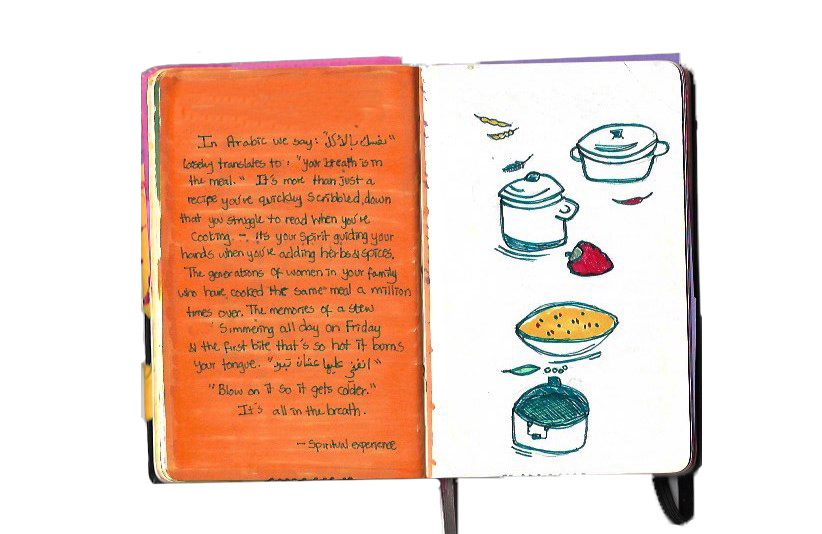 In Arabic we say: "نفسك بالأكل"
losely translates to: "your breath is in
the meal." It's more than just a
recipe you've quickly scribbled down
that you struggle to read when you're
cooking. - Its your spirit guiding your
hands when you're adding herbs & spices.
The generations of women in your family
who have cooked the same meal a million
times over. The memories of a stew
simmering all day on Friday
& the first bite that's so hot it burns
your tongue. "انفخي عليها عشان تبرد"
"Blow on it so it gets colder."
It's all in the breath.
- Spiritual experience